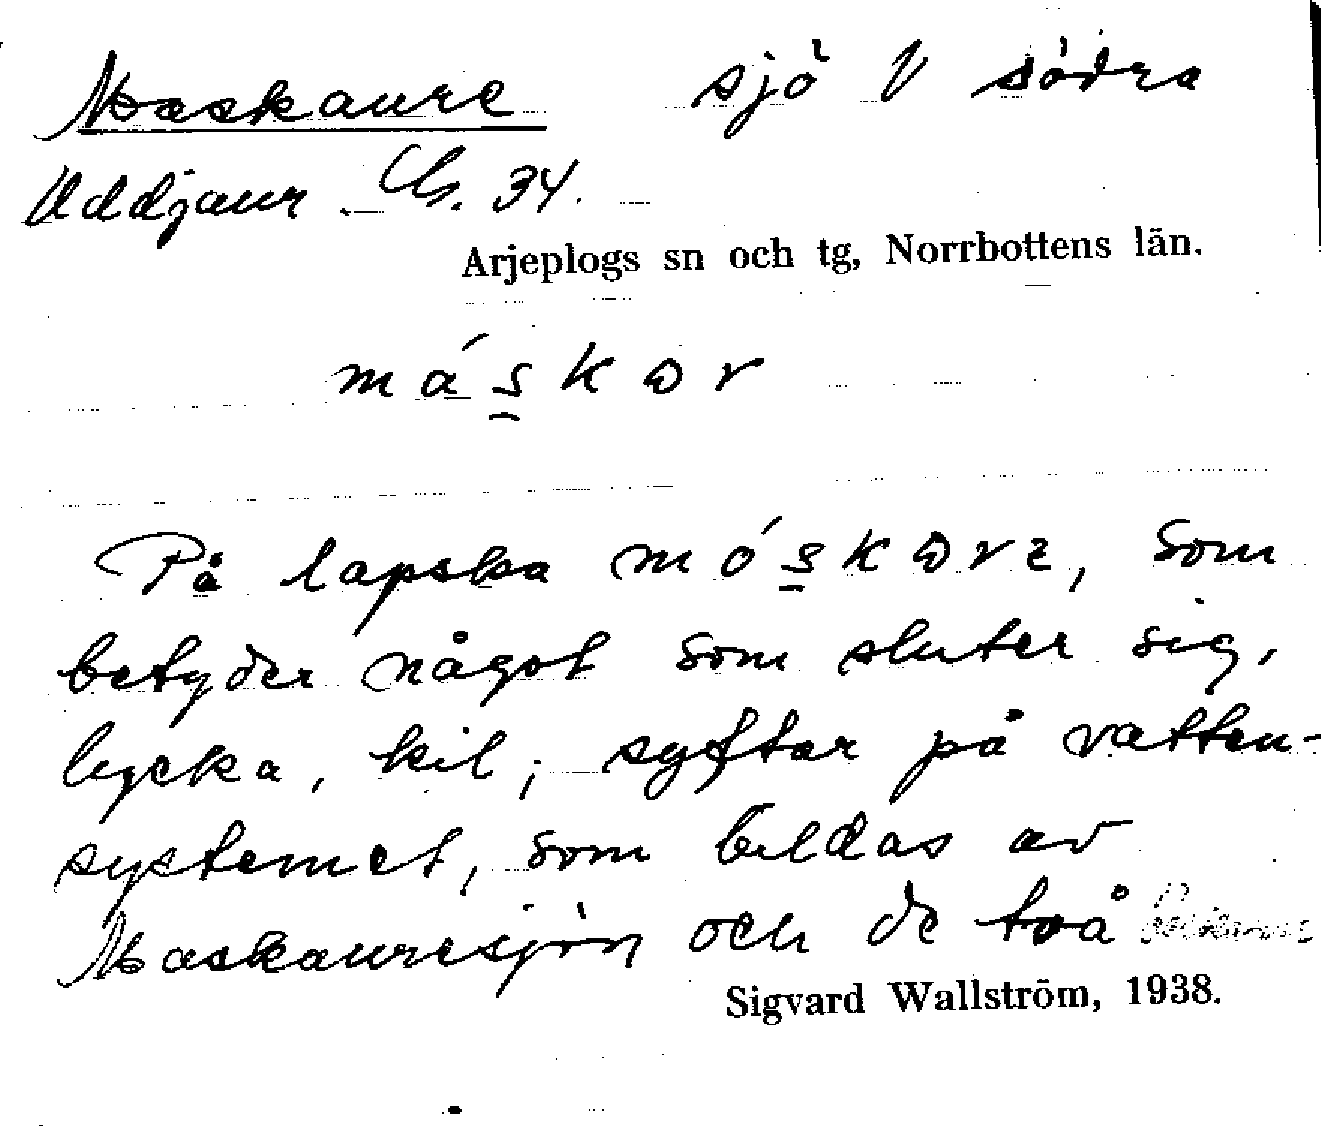 Maskaure sjö V södra
Uddjaur. Gs. 34.
Arjeplogs sn och tg, Norrbottens län.
má s̱ k ɷ r
På lapska mó s̱ k ɷ r ɛ, som
betyder något som sluter sig,
lycka, kil; syftar på vatten-
systemet, som bildas av
Maskauresjön och de två
Sigvard Wallström, 1938.